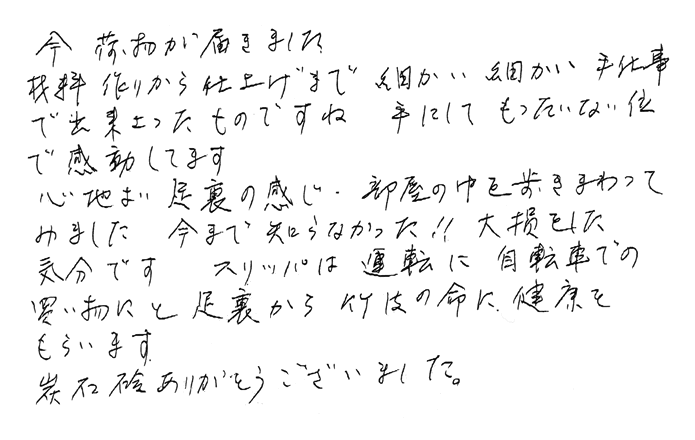 今 荷物が届きました
材料作りから仕上げまで 細かい細かい手仕事
で出来上ったものですね 手にして もったいない位
で感動してます
心地よい足裏の感じ・部屋の中を歩きまわって
みました 今まで知らなかった!! 大損をした
気分です スリッパは運転に自転車での
買い物にと足裏から竹皮の命に健康を
もらいます
炭石鹸ありがとうございました。